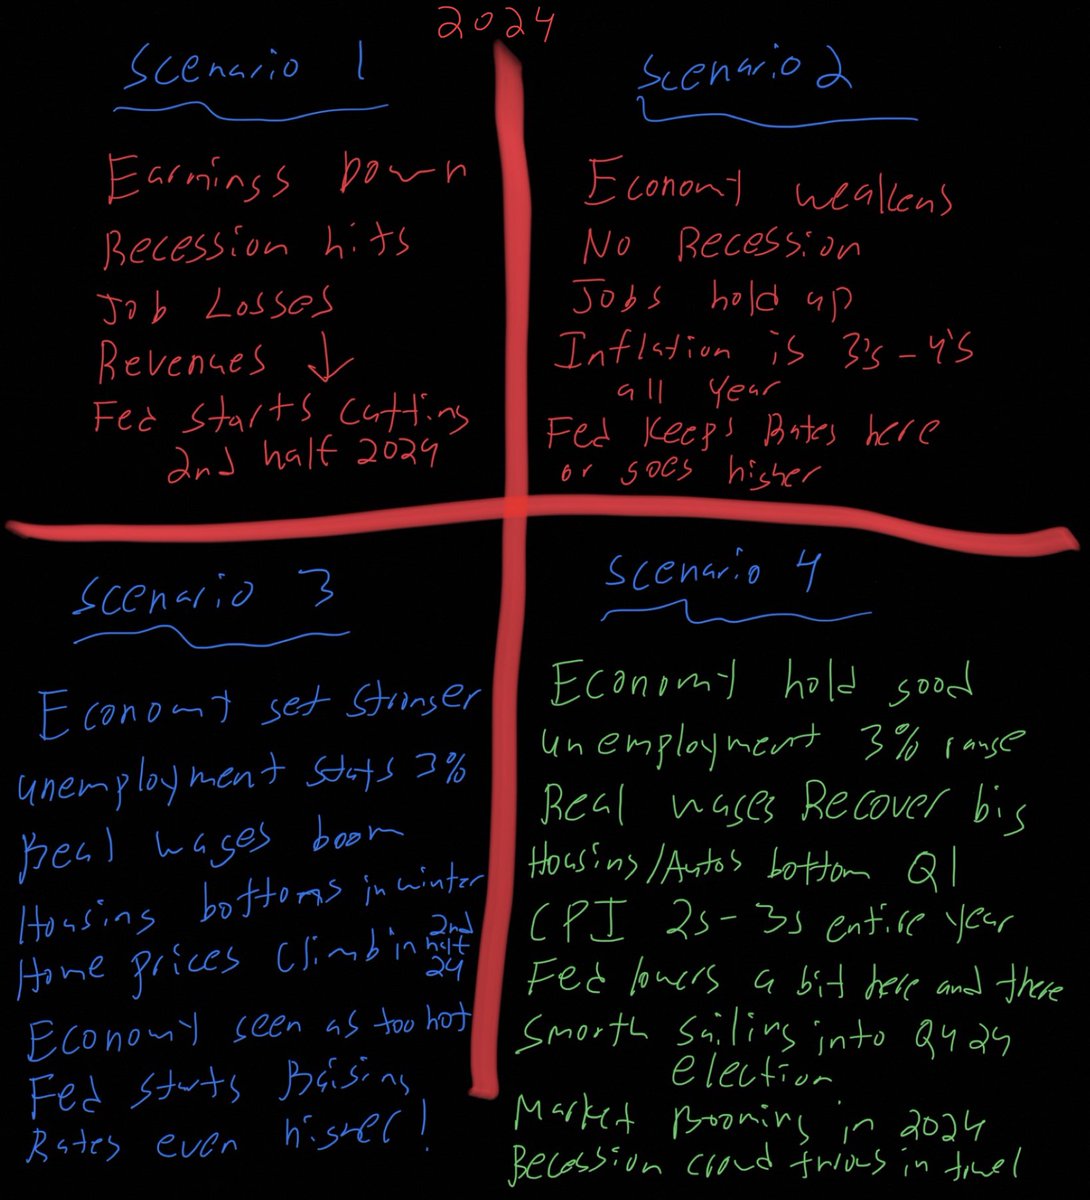 2024
Scenario 1
Earnings Down
Recession hits
Job Losses
Revenues ↓
Fed starts cutting
2nd half 2024
Scenario 2
Economy weakens
No Recession
Jobs hold up
Inflation is 3's - 4's
all year
Fed Keeps Rates here
or goes higher
Scenario 3
Economy get stronger
unemployment stays 3%
Real wages boom
Housing bottoms in winter
Home prices climb in 2nd
half
24
Economy seen as too hot
Fed starts Raising
Rates even higher!
Scenario 4
Economy hold good
unemployment 3% range
Real wages Recover big
Housing/Autos bottom Q1
CPI 2s-3s entire year
Fed lowers a bit here and there
Smooth Sailing into Q4 24
election
Market Booming in 2024
Recession crowd throws in towel